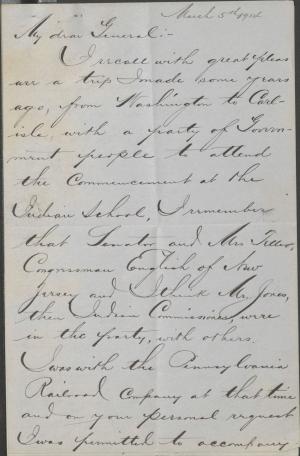 March 5th 1904
My dear General:-
I recall with great pleas
ure a trip I made some years
ago, from Washington to Carl-
isle, with a party of Govern-
ment people to attend
the Commencement at the
Indian School, I remember
that Senator and Mrs Teller,
Congressman English of New
Jersey and I think Mr. Jones,
then Indian Commissioner, were
in the party, with others.
I was with the Pennsylvania
Railroad Company at that time
and on your personal request
I was permitted to accompany